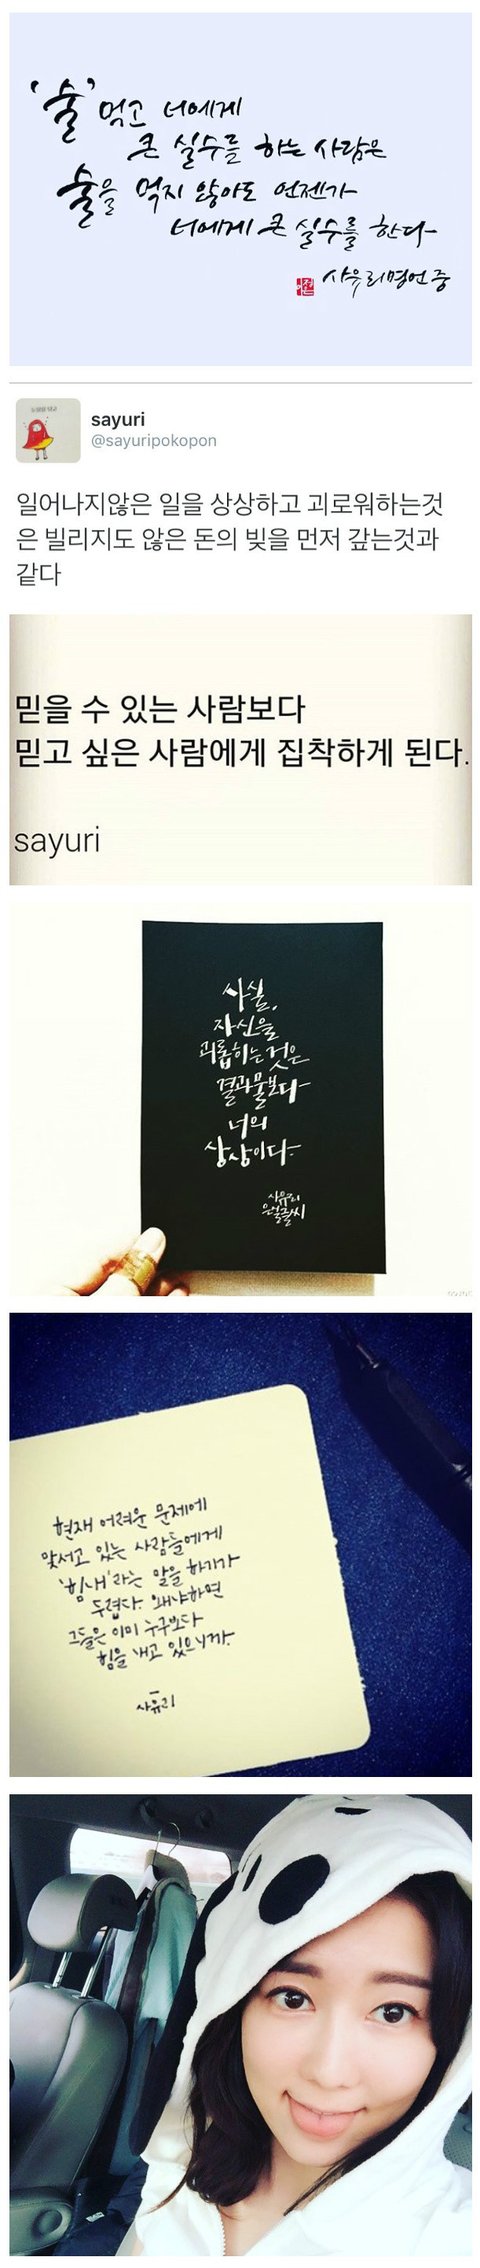 '술' 먹고 너에게
큰 실수를 하는 사람은
술을 먹지 않아도 언젠가
너에게 큰 실수를 한다
사유리명언 중
sayuri
@sayuripokopon
일어나지않은 일을 상상하고 괴로워하는것
은 빌리지도 않은 돈의 빚을 먼저 갚는것과
같다
믿을 수 있는 사람보다
믿고 싶은 사람에게 집착하게 된다.
sayuri
사실,
자신을
괴롭히는 것은
결과물보다
너의
상상이다.
사유리
현재 어려운 문제에
맞서고 있는 사람들에게
'힘내'라는 말을 하기가
두렵다. 왜냐하면
그들은 이미 누구보다
힘을 내고 있으니까.
사유리